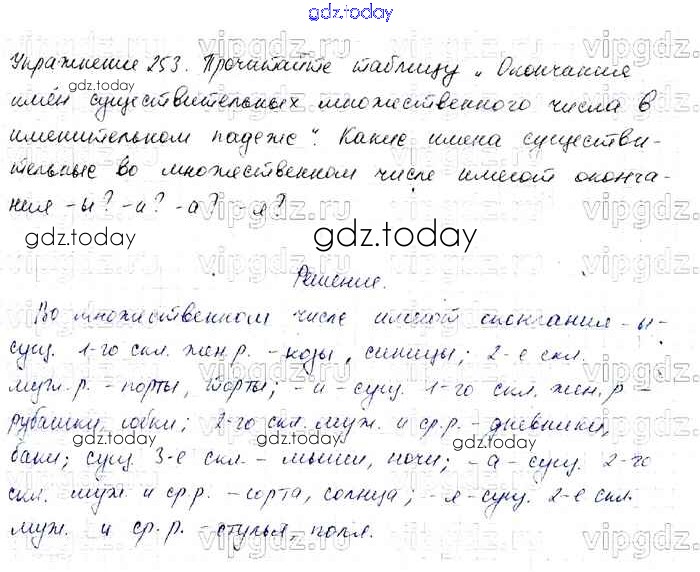 gdz.today
Упражнение 253. Прочитайте таблицу „Окончания
имён существительных множественного числа в
именительном падеже". Какие имена существи-
тельные во множественном числе имеют оконча-
ния -ы? -и? -а? -я?
gdz.today
Решение.
Во множественном числе имеют окончания -ы-
сущ. 1-го скл. жен.р. - козы, синицы; 2-е скл.
муж.р. - порты, торты; -и- сущ. 1-го скл. жен.р -
рубашки, юбки; 2-го скл. муж. и ср.р. - дневники,
баки; сущ. 3-е скл. - мыши, ночи; -а- сущ. 2-го
скл. муж и ср.р. - сорта, солнца; -я- сущ. 2-е скл.
муж. и ср.р. - стулья, поля.